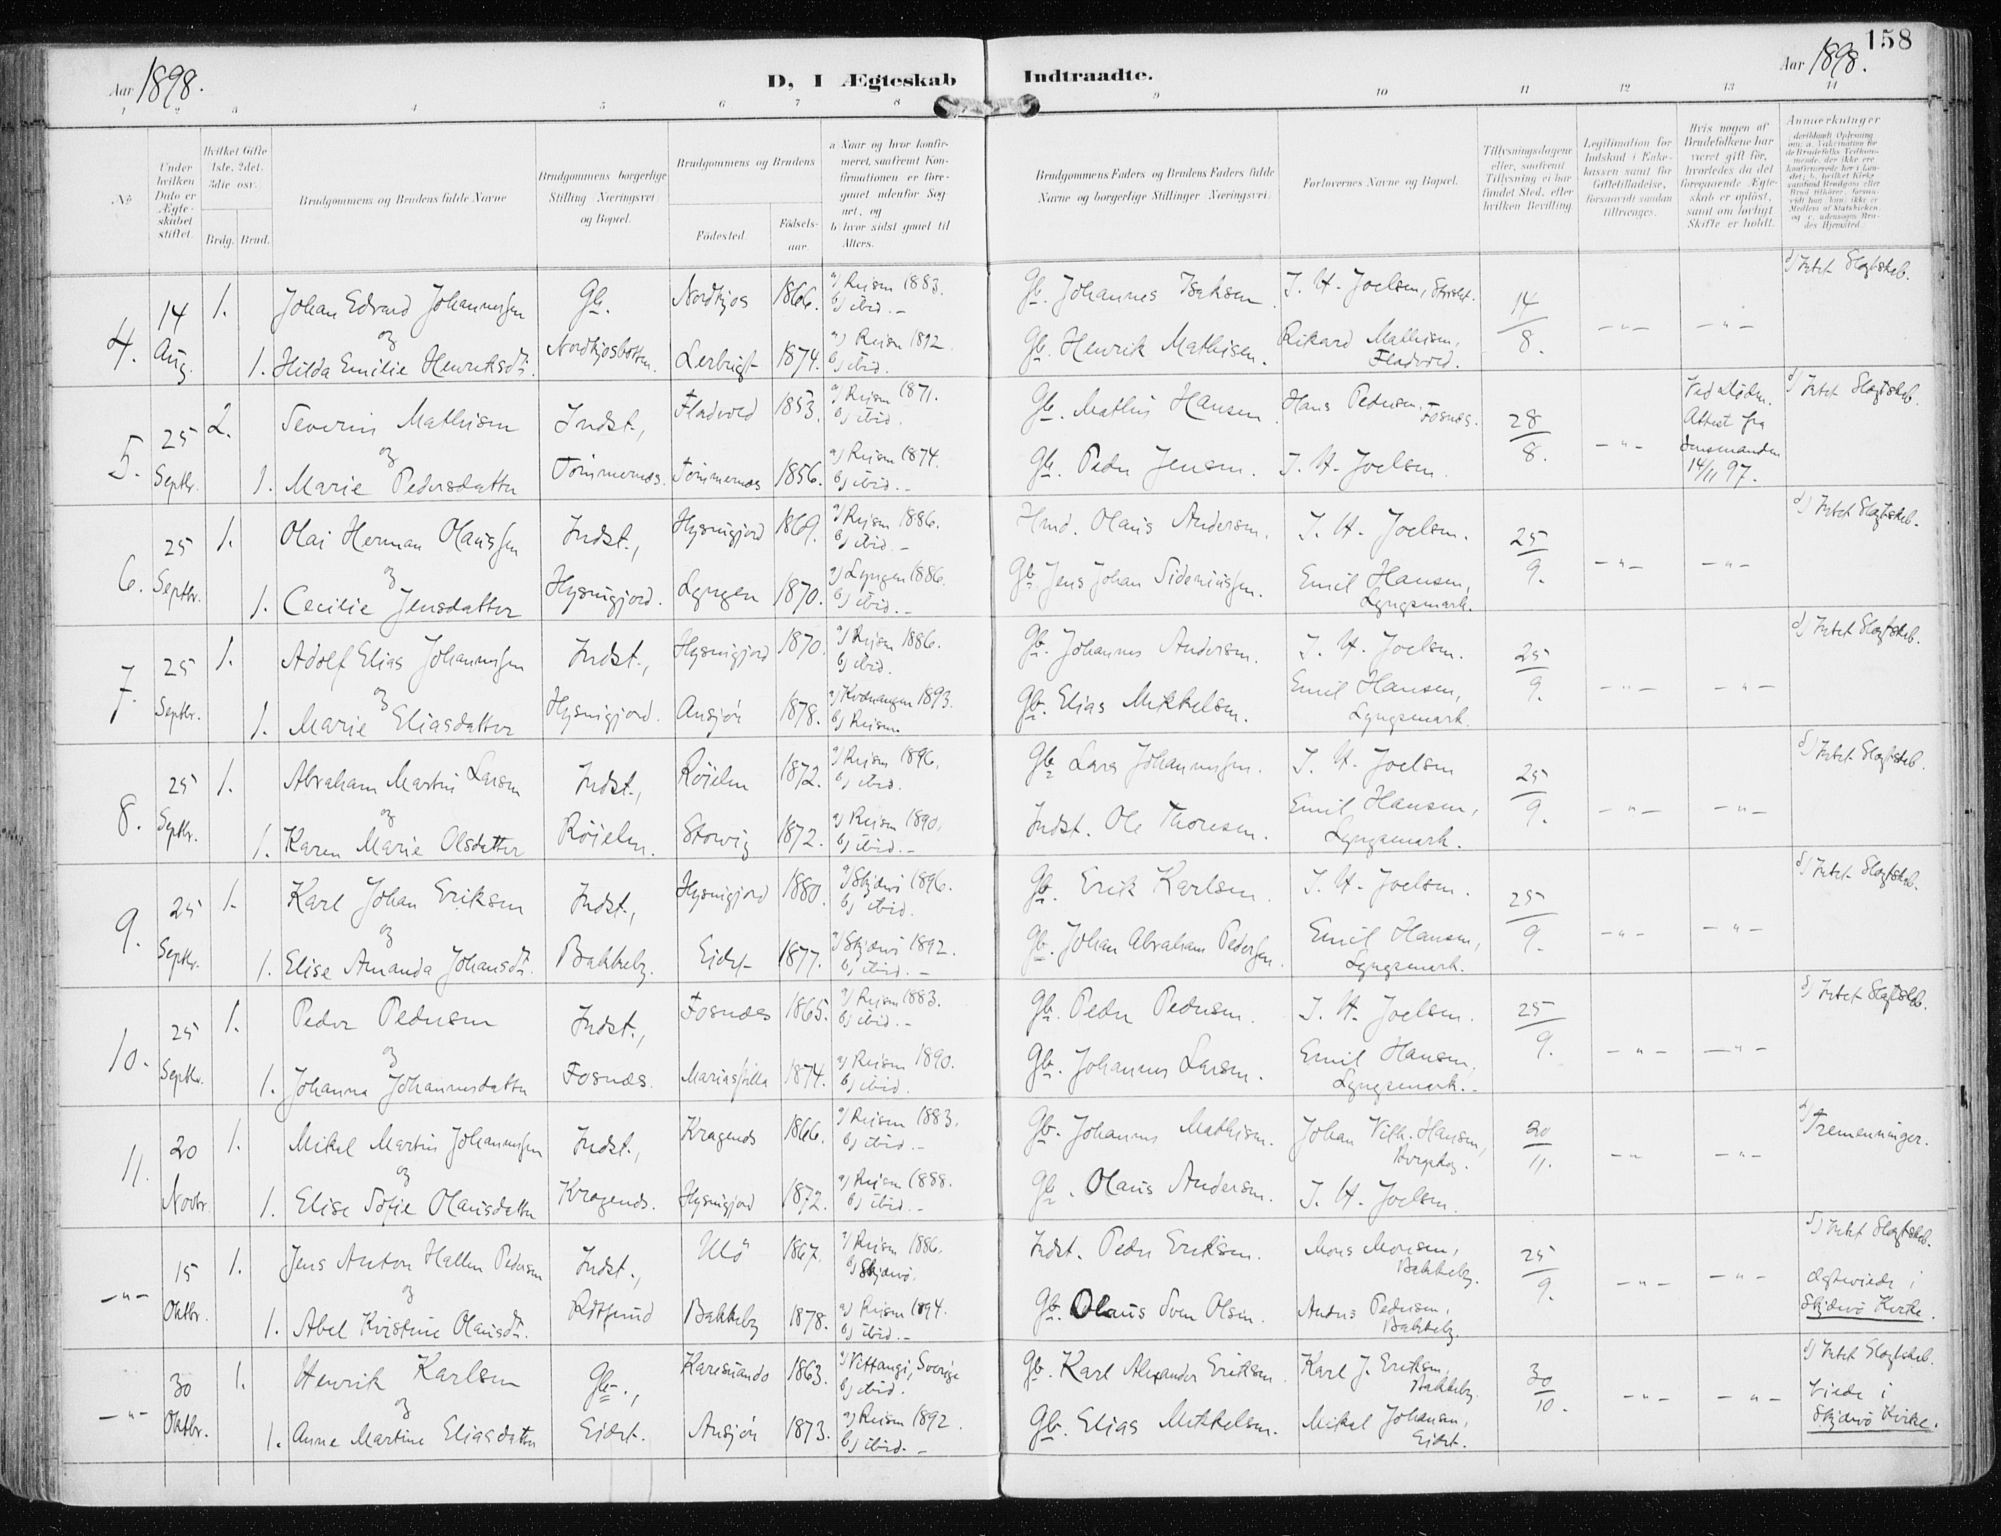 158
Aar 1898.
D, I Ægteskab Indtraadte.
Aar 1898.
1 2 3 4 5 6 7 8 9 10 11 12 13 14
No
Under hvilken Dato er Ægteskabet stiftet.
Hvilket Gifte 1ste, 2det, 3die osv.
Brdg. Brud.
Brudgommens og Brudens fulde Navne
Brudgommens borgerlige Stilling (Næringsvei) og Bopæl.
Brudgommens og Brudens
Fødested.
Fødselsaar.
a Naar og hvor konfirmeret, saafremt Konfirmationen er foregaaet udenfor Sognet, og
b hvor sidst gaaet til Alters.
Brudgommens Faders og Brudens Faders fulde Navne og borgerlige Stillinger (Næringsvei)
Forlovernes Navne og Bopæl.
Tillysningsdagene eller, saafremt Tillysning ei har fundet Sted, efter hvilken Bevilling.
Legitimation for Indskud i Enkekassen samt for Giftetilladelse, forsaavidt saadan tiltrænges.
Hvis nogen af Brudefolkene har været gift før, hvorledes da det foregaaende Ægteskab er opløst, samt om lovligt Skifte er holdt.
Anmærkninger
4. 14 Aug. 1. Johan Edvard Johannessen Gb. Nordkjos 1866. a) Reisen 1883. b) ibid. – Gb. Johannes Isaksen. J. H. Joelsen, Storslet. 14/8. – " – – " – d) Intet Slegtskab.
og
1. Hilda Emilie Henriksdt. Nordkjosbotten. Lerbugt 1874. a) Reisen 1892. b) ibid. Gb. Henrik Mathisen. Rikard Mathisen, Fladvold.
5. 25 Septbr. 2. Severin Mathisen Indst., Fladvold 1853. a) Reisen 1871. b) ibid. Gb. Mathis Hansen. Hans Pedersen, Fosnæs. 28/8. – " – Ved Døden. Attest fra Lensmanden 14/11 97. d) Intet Slegtskab.
og
1. Marie Pedersdatter Tømmernæs. Tømmernæs 1856. a) Reisen 1874. b) ibid. – Gb. Peder Jensen. J. H. Joelsen.
6. 25 Septbr. 1. Olai Herman Olaussen Indst., 1869. a) Reisen 1886. b) ibid. – Olaus Andersen. J. H. Joelsen. 25/9. – " – – " – d) Intet Slegtskab.
og
1. Cecilie Jensdatter Lyngen 1870. a) Lyngen 1886. b) ibid. – Gb. Jens Johan Emil Hansen, Lyngsmark.
7. 25 Septbr. 1. Adolf Elias Johannessen Indst., 1870. a) Reisen 1886. b) ibid. Gb. Johannes Andersen. J. H. Joelsen. 25/9. – " – – " – d) Intet Slegtskab.
og
1. Marie Eliasdatter 1878. a) Kvænangen 1893. b) Reisen Gb. Elias Mikkelsen. Emil Hansen, Lyngsmark.
8. 25 Septbr. 1. Abraham Martin Larsen Indst., Røielen 1872. a) Reisen 1896. b) ibid. Gb. Lars Johannessen. J. H. Joelsen 25/9. – " – – " – d) Intet Slegtskab.
og
1. Karen Marie Olsdatter Røielen. Storvig 1872. a) Reisen 1890. b) ibid. – Indst. Ole Thoresen. Emil Hansen, Lyngsmark.
9. 25 Septbr. 1. Karl Johan Eriksen Indst., 1880. a) Skjærvø 1896. b) ibid. Gb. Erik Karlsen. J. H. Joelsen. 25/9. – " – – " – d) Intet Slegtskab.
og
1. Elise Amanda Johansdt. Bakkeby. Eidet 1877. a) Skjærvø 1892. b) ibid. – Gb. Johan Abraham Pedersen. Emil Hansen, Lyngsmark.
10. 25 Septbr. 1. Peder Pedersen Indst., Fosnæs 1865. a) Reisen 1883. b) ibid. – Gb. Peder Pedersen. J. H. Joelsen. 25/9. – " – – " – d) Intet Slegtskab.
og
1. Johanna Johannesdatter Fosnæs. 1874. a) Reisen 1890. b) ibid. Gb. Johannes Larsen. Emil Hansen, Lyngsmark. –
11. 20 Novbr. 1. Mikal Martin Johannessen Indst., Kragenes 1866. a) Reisen 1883. b) ibid. – Gb. Johannes Mathisen. Johan Vilh. Hansen, 20/11. – " – – " – d) Tremenninger.
og
1. Elise Sofie Olausdatter Kragenes. 1872. a) Reisen 1888. b) ibid. – Gb. Olaus Andersen. J. H. Joelsen.
– " – 15 Oktbr. 1. Jens Anton Hallen Pedersen Indst., Ulø 1867. a) Reisen 1886. b) Skjærvø. Indst. Peder Eriksen. Mons Monsen, Bakkeby. 25/9. – " – – " – d) Intet Slegtskab. Ægteviede i Skjærvø Kirke.
og
1. Abel Kristine Olausdt. Rotsund Bakkeby 1878. a) Reisen 1894. b) ibid. – Gb. Olaus Sven Olsen. Anders Pedersen, Bakkeby.
– " – 30 Oktbr. 1. Henrik Karlsen Gb., Karesuando 1863. a) Vittangi, Sverige b) ibid. Gb. Karl Alexander Eriksen. Karl J. Eriksen, Bakkeby. 30/10. – " – – " – d) Intet Slegtskab. Viede i Skjærvø Kirke.
og
1. Anne Martine Eliasdatter Eidet. 1873. a) Reisen 1892. b) ibid. – Gb. Elias Mikkelsen. Mikal Johansen, Eidet.